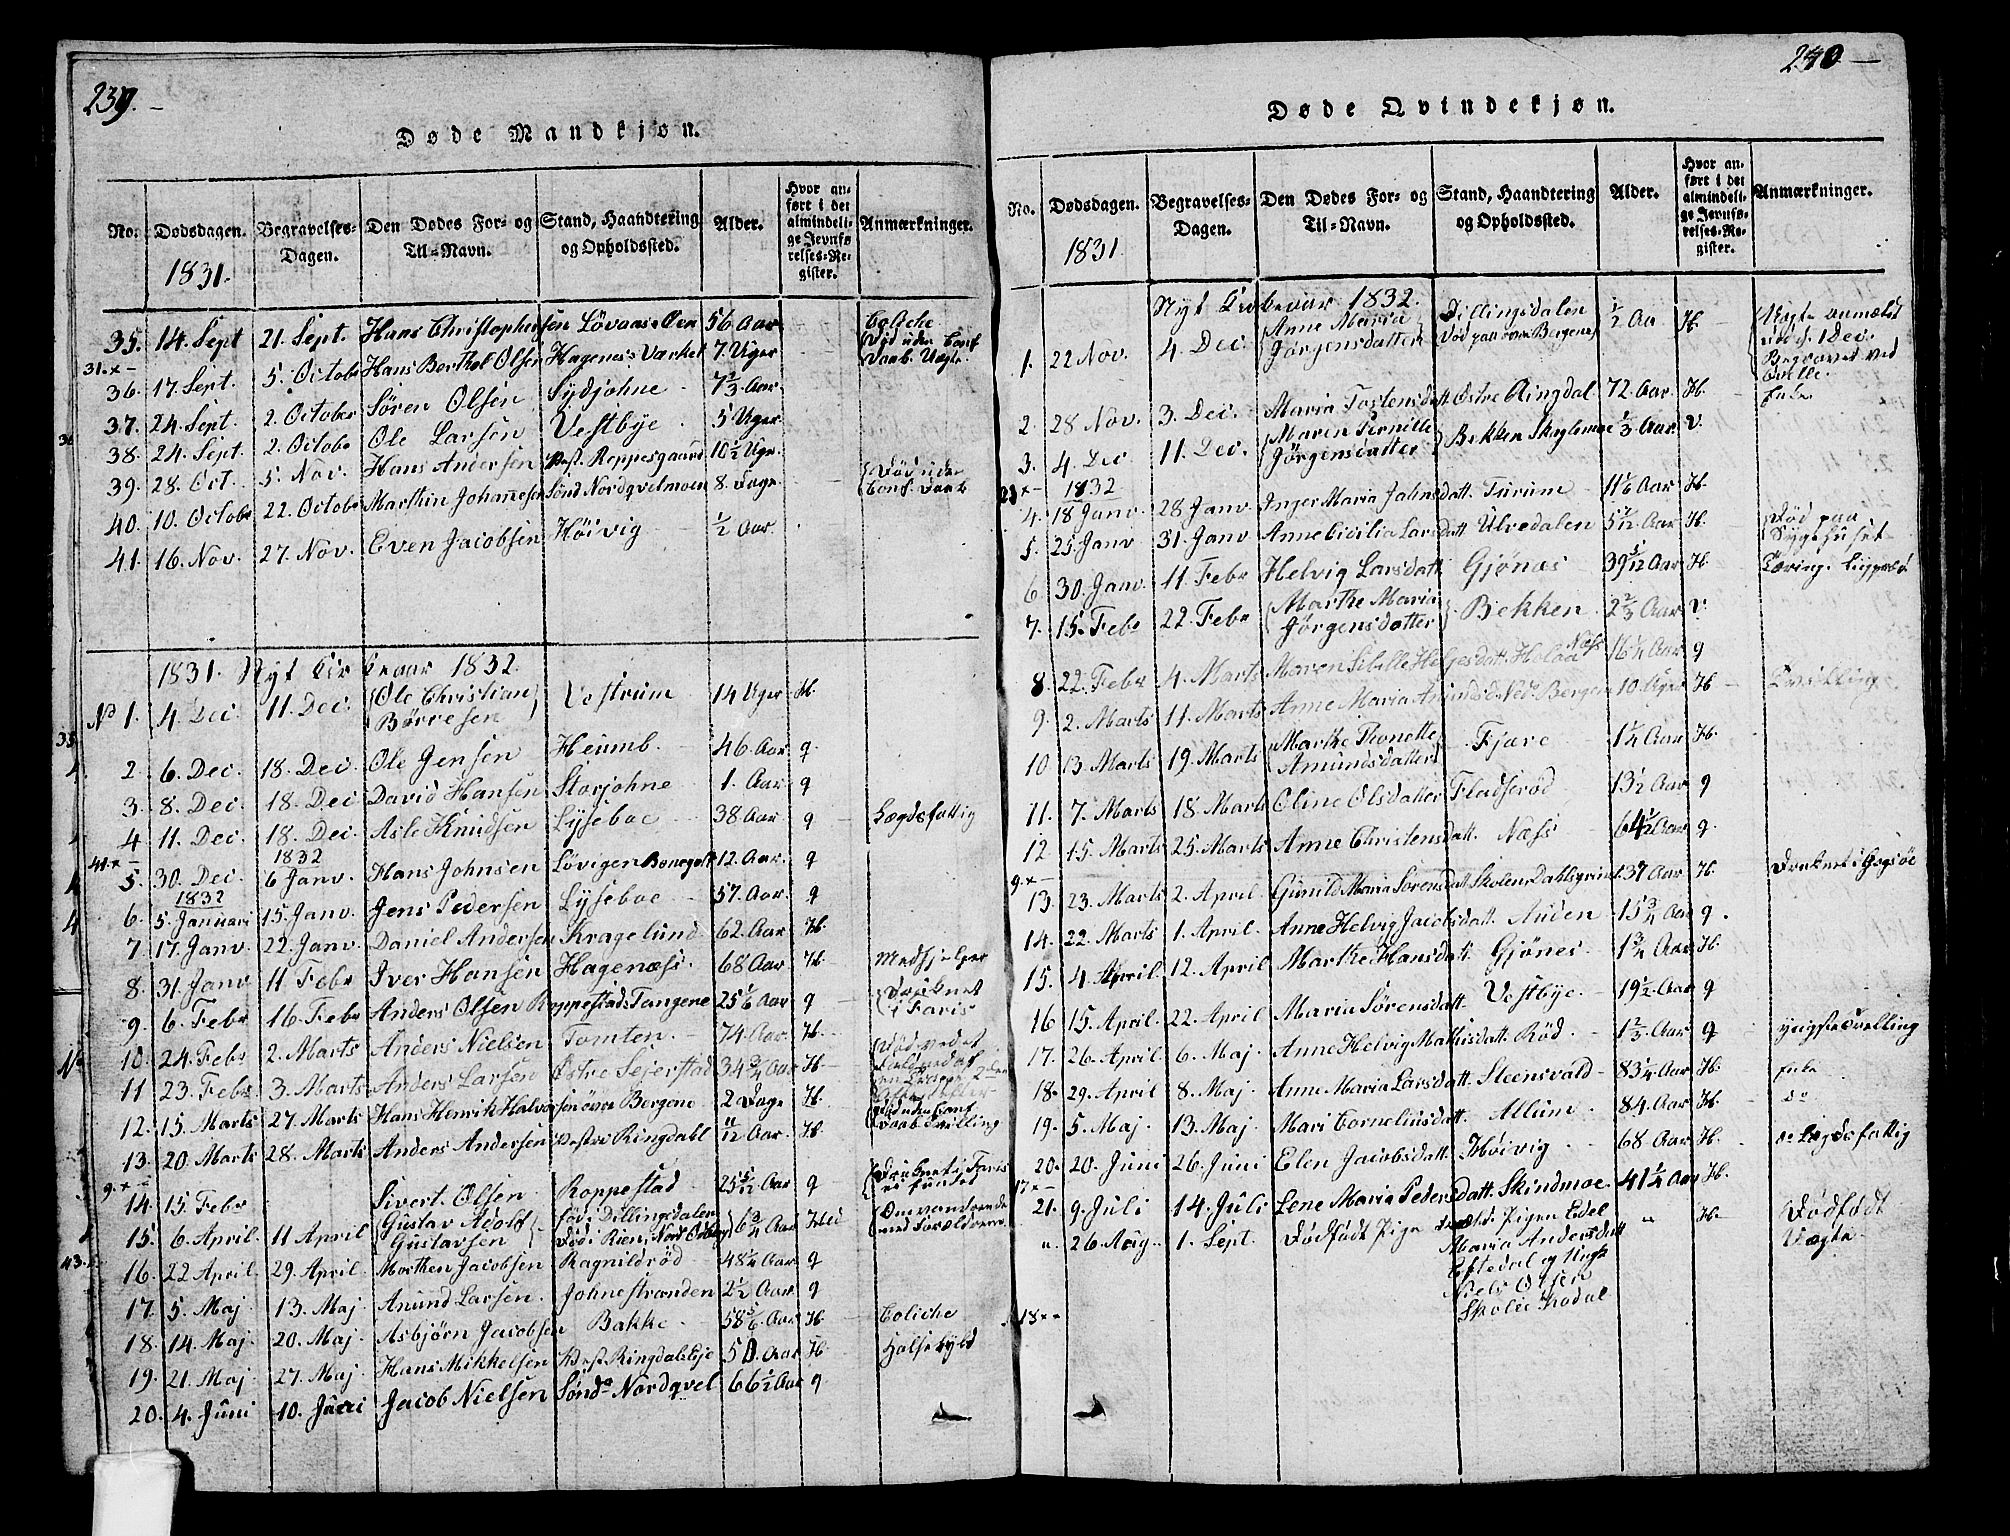 239.
Døde Mandkjøn.
No. Dødsdagen. Begravelses-Dagen. Den Dødes For- og Til-Navn. Stand, Haandtering og Opholdssted. Alder. Hvor anført i det almindelige Jevnførelses-Register. Anmærkninger.
1831.
35. 14. Sept 21. Sept. Hans Christophersen Løvaas Øen 56 Aar
31.x-
36. 17. Sept. 5. Octobr Hans Berthel Olsen Hagenæs Værket 7. Uger
37. 24. Sept. 2. October Søren Olsen Sydjohne 7 1/3 Aar
38. 24. Sept. 2. Octobr Ole Larsen Vestbye 5 Uger
39. 28. Oct. 5. Nov. Hans Andersen Vest. Roppesgaard 10 1/2 Uger
40. 10. Octobr 22. Octobr Marthin Johannesen Sønd Nordqvelmoen 8. Dage
41. 16. Nov. 27. Nov. Even Jacobsen Høivig 1/2 Aar
1831. Nyt Kirkeaar 1832.
No 1. 4. Dec 11. Dec. Ole Christian Børresen Vestrum 14 Uger H.
2. 6. Dec. 18. Dec. Ole Jensen Heumb 46. Aar q
3. 8. Dec. 18. Dec David Hansen Storjohne 1. Aar q
4 11. Dec. 18. Dec Asle Knudsen Lyseboe 38 Aar q Lægdsfattig
1832
41.x-
5. 30. Dec. 6 Janv. Hans Johnsen Løvigen 12. Aar. q
1832
6. 5. Januari 15. Janv. Jens Pedersen Lyseboe 57. Aar q
7. 17. Janv 22. Janv. Daniel Andersen Kragelund 62. Aar H.
8. 31. Janv 11 Febr Iver Hansen Hagenæs 68 Aar H. Medhjelper
9. 6. Febr 16. Febr Anders Olsen Roppestads Tangene 25 1/6 Aar q Druknet i Faris
10. 24. Febr 2. Marts Anders Nielsen Tomten 74. Aar H.
11 23. Febr 3. Marts Anders Larsen Østre Sejerstad 34 3/4 Aar H
12. 15. Marts 27. Marts Hans Henrik Halvorsen øvre Bergene 2 Dage H.
13. 20. Marts 28. Marts Anders Andersen Vestre Ringdahl 11/12 Aar. H.
9.x-
14. 15. Febr Sivert Olsen Roppestad 25 5/12 Aar q Druknet i Faris ei fundet
15. 6. April 11 April Gustav Adolf Gustavsen fød i Dillingsdalen 6 3/4 Aar Omvandrende med Forældrene
43.
16. 22 April 29. April. Morthen Jacobsen Ragnildrød 48 1/4 Aar q
17. 5. Maj 13. Maj Amund Larsen. Johnestranden 2 1/2 Aar q
18. 14. Maj 20. Maj Asbjørn Jacobsen Bakke 58 5/6 Aar H.
19. 21. Maj 27. Maj Hans Mikkelsen Vest Ringdals Eje 50. Aar H.
20. 4. Juni 10. Juni Jacob Nielsen Sønd. Nordqvel 66 1/2 Aar q
240
Døde Qvindekjøn.
No. Dødsdagen. Begravelses-Dagen. Den Dødes For- og Til-Navn. Stand, Haandtering og Opholdssted. Alder. Hvor anført i det almindelige Jevnførelses-Register. Anmærkninger.
1831
Nyt Kirkeaar 1832.
1. 22 Nov. 4. Dec Anne Maria Jørgensdatter Dillingsdalen 1/2 Aar H.
2. 28 Nov. 3. Dec. Maria Tostensdatt Østre Ringdal 72. Aar H.
3. 4. Dec 11. Dec. Maren Pernille Jørgensdatter Bekken 1/3 Aar v.
1832
4. 18 Janv. 28 Janv Inger Maria Johnsdatt. Furum 11 1/6 Aar H.
5. 25. Janv 31. Janv Anne Cicilia Larsdatt Ulvedalen 5 7/12 Aar H. Død paa Sygehuset
6 30. Janv. 11. Febr Helvig Larsdatt Gjønæs 39 5/12 Aar H.
7. 15. Febr 22. Febr Marthe Maria Jørgensdatter Bekken 2 2/3 Aar v.
8. 22. Febr 4. Marts Maren Sibille Helgesdatt. Næss 16 1/4 Aar q
9. 2. Marts 11. Marts Anne Maria Amundsd Ned. Bergene 10. Uger H Tvilling
10 13. Marts 19. Marts Marthe Amundsdatter Fjære 1 1/4 Aar H.
11. 7. Marts 18. Marts Oline Olsdatter Fladserød 13 1/2 Aar q
12. 15. Marts 25. Marts Anne Christensdatt. Næss 64 1/2 Aar q.
9.x-
13. 23. Marts 2. April. Gunild Maria Sørensdatt Skolen Dahlsgrind 37 Aar H.
14. 22. Marts 1. April. Anne Helvig Jacobsdatt. Auden 15 3/4 Aar q.
15. 4. April. 12. April Marthe Hansdatt Gjønes 1 3/4 Aar H.
16 15. April. 22. April Maria Sørensdatt Vestbye 19 1/2 Aar q
17. 26. April. 6. Maj. Anne Helvig Mathisdatt. Rød 1 2/3 Aar q yngste Tvelling
18. 29. April 8. Maj. Anne Maria Larsdatt. Steensvald 83 1/4 Aar H.
19. 5. Maj. 13. Maj. Mari Corneliusdatt. Allum 84. Aar H.
20. 20. Juni 26. Juni Elen Jacobsdatt Høivig 68 Aar H. Lægdsfattig
17x-
21. 9. Juli 14. Juli Lene Maria Pedersdatt. Skindmoe. 41 1/4 Aar H.
" 26. Aug. 1. Sept. Dødfødt Pige Pigen Edel Maria Andersdatt Niels Olsen Skolen Kodal " H. Dødfødt Uægte
18x-